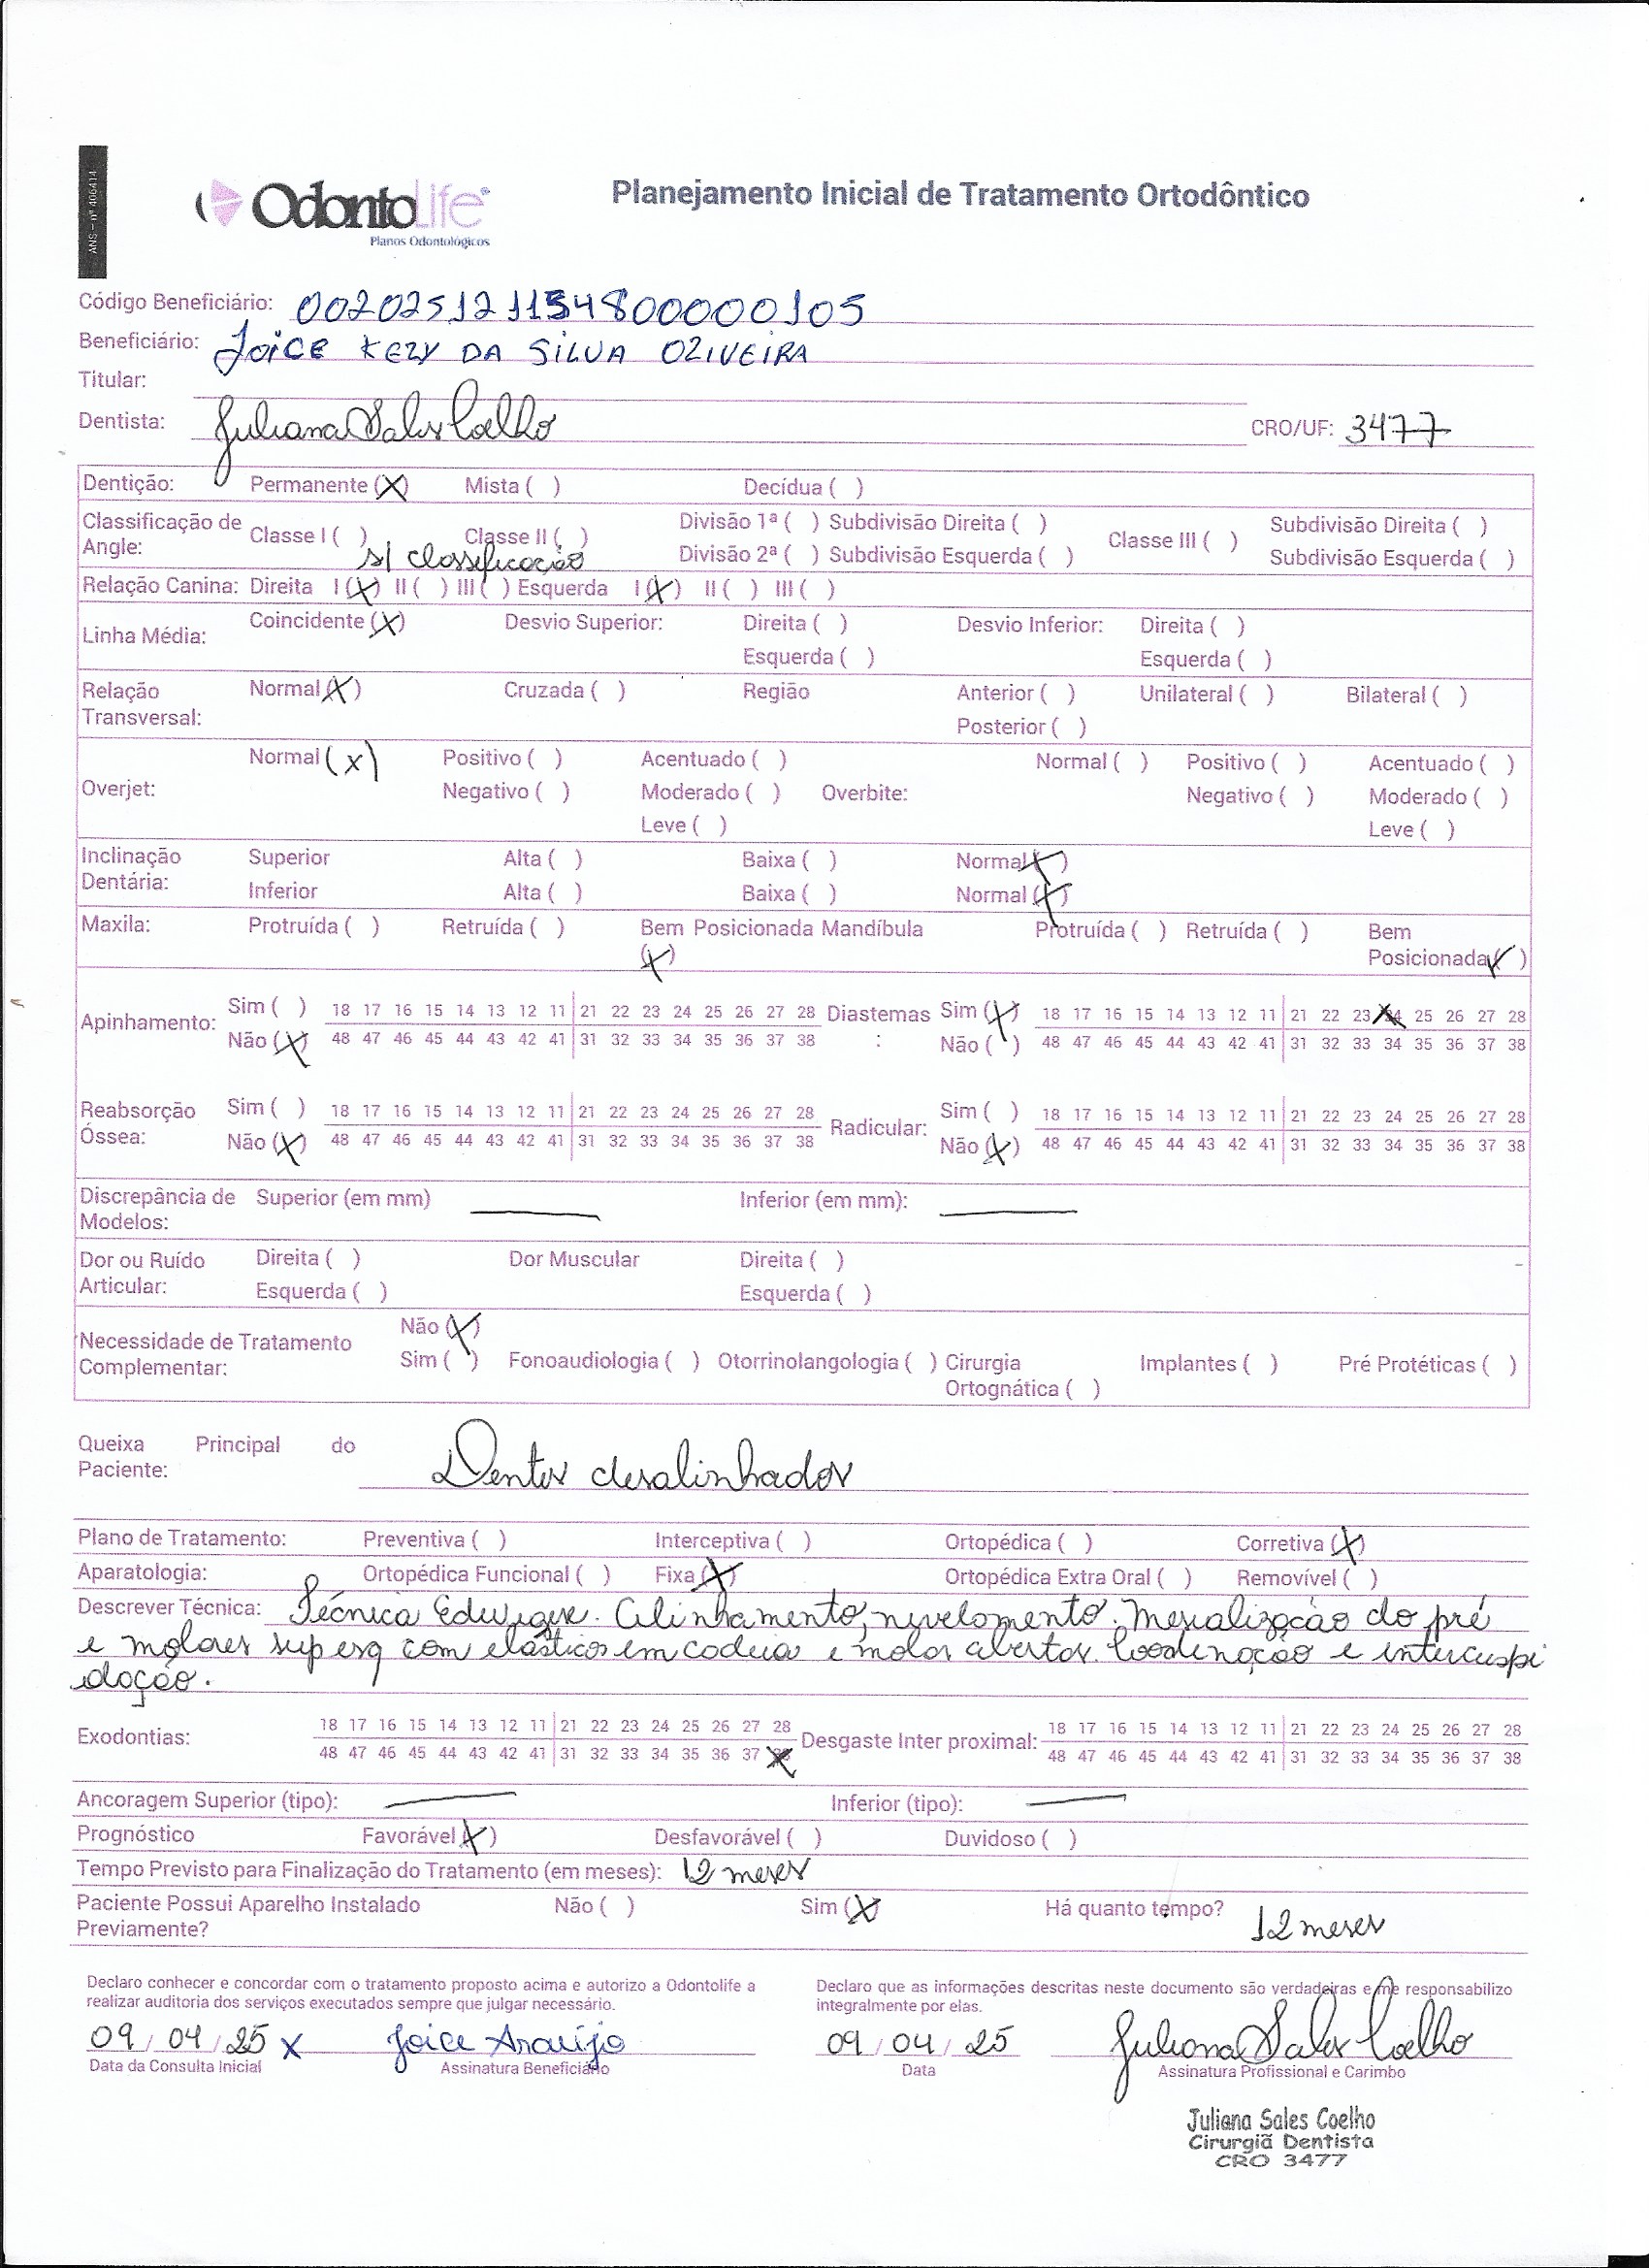 ANS - nº 406414
OdontoLife
Planos Odontológicos
Planejamento Inicial de Tratamento Ortodôntico
Código Beneficiário: 002025121154800000105
Beneficiário: Joice Kezy da Silva Oliveira
Titular:
Dentista: Juliana Sales Coelho CRO/UF: 3477
Dentição: Permanente (X) Mista ( ) Decídua ( )
Classificação de Angle: Classe I ( ) Classe II ( ) Divisão 1ª ( ) Subdivisão Direita ( ) Classe III ( ) Subdivisão Direita ( )
s/ classificação Divisão 2ª ( ) Subdivisão Esquerda ( ) Subdivisão Esquerda ( )
Relação Canina: Direita I (X) II ( ) III ( ) Esquerda I (X) II ( ) III ( )
Linha Média: Coincidente (X) Desvio Superior: Direita ( ) Desvio Inferior: Direita ( )
Esquerda ( ) Esquerda ( )
Relação Transversal: Normal (X) Cruzada ( ) Região Anterior ( ) Unilateral ( ) Bilateral ( )
Posterior ( )
Overjet: Normal (x) Positivo ( ) Acentuado ( ) Normal ( ) Positivo ( ) Acentuado ( )
Negativo ( ) Moderado ( ) Overbite: Negativo ( ) Moderado ( )
Leve ( ) Leve ( )
Inclinação Dentária: Superior Alta ( ) Baixa ( ) Normal (X)
Inferior Alta ( ) Baixa ( ) Normal (X)
Maxila: Protruída ( ) Retruída ( ) Bem Posicionada (X) Mandíbula Protruída ( ) Retruída ( ) Bem Posicionada (X)
Apinhamento: Sim ( ) 18 17 16 15 14 13 12 11 21 22 23 24 25 26 27 28 Diastemas: Sim (X) 18 17 16 15 14 13 12 11 21 22 23 24 25 26 27 28
Não (X) 48 47 46 45 44 43 42 41 31 32 33 34 35 36 37 38 Não ( ) 48 47 46 45 44 43 42 41 31 32 33 34 35 36 37 38
Reabsorção Óssea: Sim ( ) 18 17 16 15 14 13 12 11 21 22 23 24 25 26 27 28 Radicular: Sim ( ) 18 17 16 15 14 13 12 11 21 22 23 24 25 26 27 28
Não (X) 48 47 46 45 44 43 42 41 31 32 33 34 35 36 37 38 Não (X) 48 47 46 45 44 43 42 41 31 32 33 34 35 36 37 38
Discrepância de Modelos: Superior (em mm) — Inferior (em mm): —
Dor ou Ruído Articular: Direita ( ) Dor Muscular Direita ( )
Esquerda ( ) Esquerda ( )
Necessidade de Tratamento Complementar: Não (X)
Sim ( ) Fonoaudiologia ( ) Otorrinolangologia ( ) Cirurgia Ortognática ( ) Implantes ( ) Pré Protéticas ( )
Queixa Principal do Paciente: Dentes desalinhados
Plano de Tratamento: Preventiva ( ) Interceptiva ( ) Ortopédica ( ) Corretiva (X)
Aparatologia: Ortopédica Funcional ( ) Fixa (X) Ortopédica Extra Oral ( ) Removível ( )
Descrever Técnica: Técnica Edwigse. Alinhamento, nivelamento. Mesialização do pré
e molares sup esq com elásticos em cadeia e molas abertas. Coordenação e intercuspi
dação.
Exodontias: 18 17 16 15 14 13 12 11 21 22 23 24 25 26 27 28 Desgaste Inter proximal: 18 17 16 15 14 13 12 11 21 22 23 24 25 26 27 28
48 47 46 45 44 43 42 41 31 32 33 34 35 36 37 38 48 47 46 45 44 43 42 41 31 32 33 34 35 36 37 38
Ancoragem Superior (tipo): — Inferior (tipo): —
Prognóstico Favorável (X) Desfavorável ( ) Duvidoso ( )
Tempo Previsto para Finalização do Tratamento (em meses): 12 meses
Paciente Possui Aparelho Instalado Previamente? Não ( ) Sim (X) Há quanto tempo? 12 meses
Declaro conhecer e concordar com o tratamento proposto acima e autorizo a Odontolife a
realizar auditoria dos serviços executados sempre que julgar necessário.
Declaro que as informações descritas neste documento são verdadeiras e me responsabilizo
integralmente por elas.
09 / 04 / 25 X Joice Araújo 09 / 04 / 25 Juliana Sales Coelho
Data da Consulta Inicial Assinatura Beneficiário Data Assinatura Profissional e Carimbo
Juliana Sales Coelho
Cirurgiã Dentista
CRO 3477